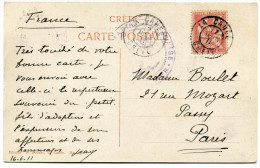 France
CRÈTE
CARTE POSTALE
Très touché de votre
bonne carte, je
vous envoie avec
celle-ci le respectueux
souvenir du petit
fils d'adoption et
l'expression de son
affection et de ses
hommages
16.2.11
Madame Boullet
21 rue Mozart
Passy
Paris